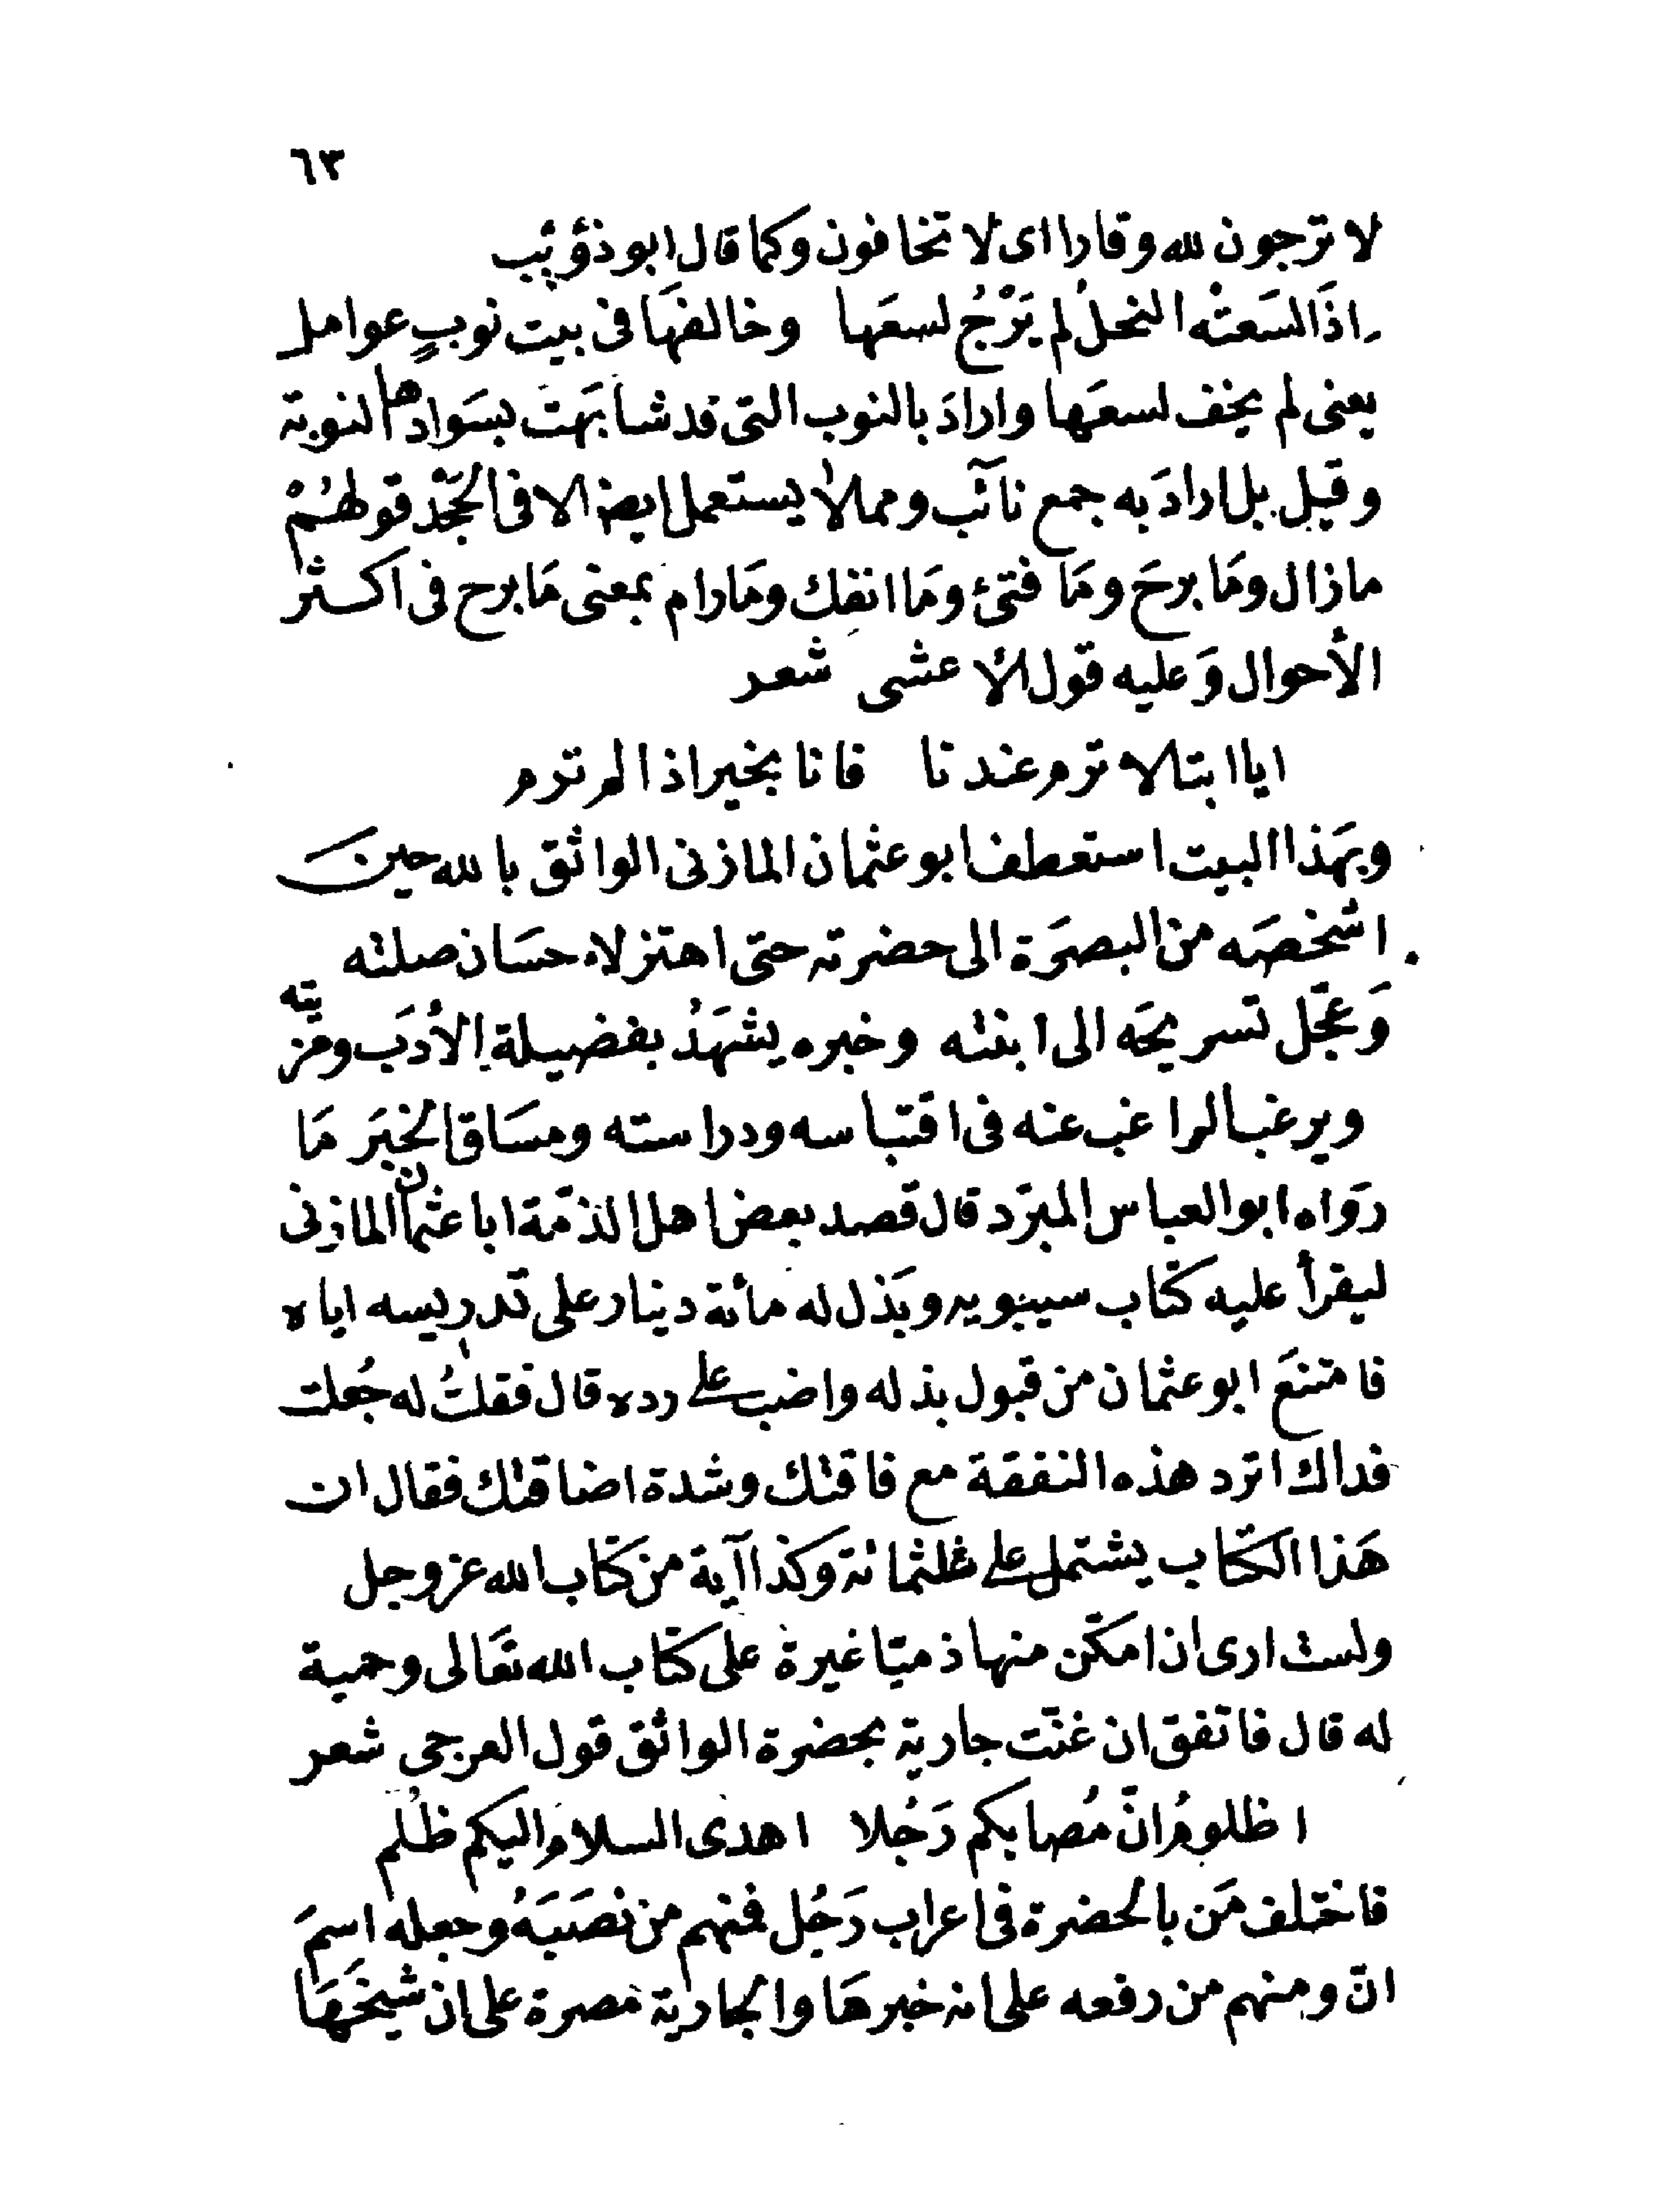 ٦٣
لا ترجون لله وقارا اى لا تخافون وكما قال ابو ذؤيب
اذَا لسَعتْه النحلُ لم يَرْجُ لسعَها وخالفهَا فى بيت نوبٍ عوامل
يعنى لم يخف لسعَها وارادَ بالنوب التى قد شابهَت بسَوادها النوبة
وقيل بل ارادَ به جمع نآئب ومما لا يستعمل ايضا الا فى الجَحْد قولهُمْ
مازال ومَا برحَ ومَا فتئ ومَا انفك ومَا رام بمعنى مَا برح فى اكثر
الأحوال وَعليه قول الأعشى شعر
ايا ابتا لا ترم عندنا فانا بخير اذا لم ترم
وبهَذا البيت استعطف ابو عثمان المازنى الواثق بالله حين
اشخصَه من البصرَة الى حضرته حتى اهتز لاحسَان صلته
وَعجّل تسريحَه الى ابنته وخبره يشهَدُ بفضيلة الأدَب ومزيّته
ويرغب الراغب عنه فى اقتباسه ودراسته ومسَاق الخبَر مَا
روَاه ابو العباس المبرّد قال قصد بعض اهل الذمّة ابا عثمان المازنى
ليقرأ عليه كتاب سيبويه وبَذل له مائة دينار على تدريسه اياه
فامتنعَ ابو عثمان من قبول بذله واضب على رده قال فقلتُ له جُعلت
فداك اترد هذه النفقة مع فاقتك وشدة اضاقتك فقال ان
هَذا الكتاب يشتمل على ثلثمائة وَكذا آية من كتاب الله عز وجل
ولست ارى ان امكّن منها ذميّا غيرة على كتاب الله تعَالى وحمية
له قال فاتفق ان غنّت جارية بحضرة الواثق قول العرجى شعر
اظلومُ انّ مُصابكم رَجُلا اهدى السلامَ اليكم ظُلم
فاختلف مَن بالحضرة فى اعراب رَجُل فمنهم من نصَبَهُ وجعله اسمَ
انّ ومنهم من رفعه على انه خبرهَا والجارية مصرة على ان شيخَهَا